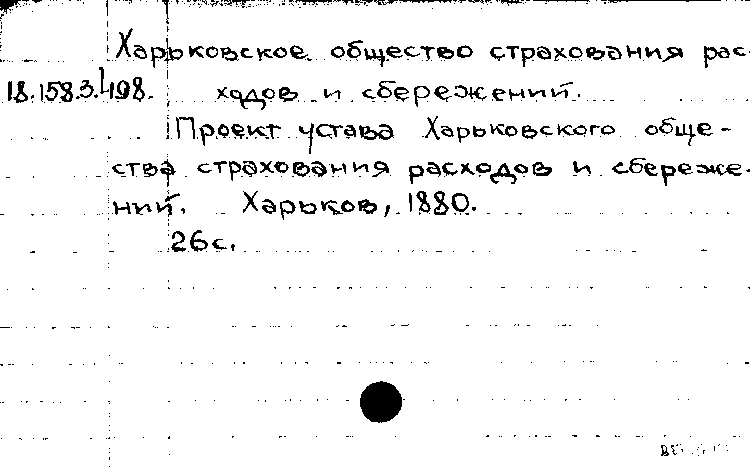 Харьковское общество страхования рас-
18.158.3.498. ходов и сбережений.
Проект устава Харьковского обще-
ства страхования расходов и сбереже-
ний. Харьков, 1880.
26с.